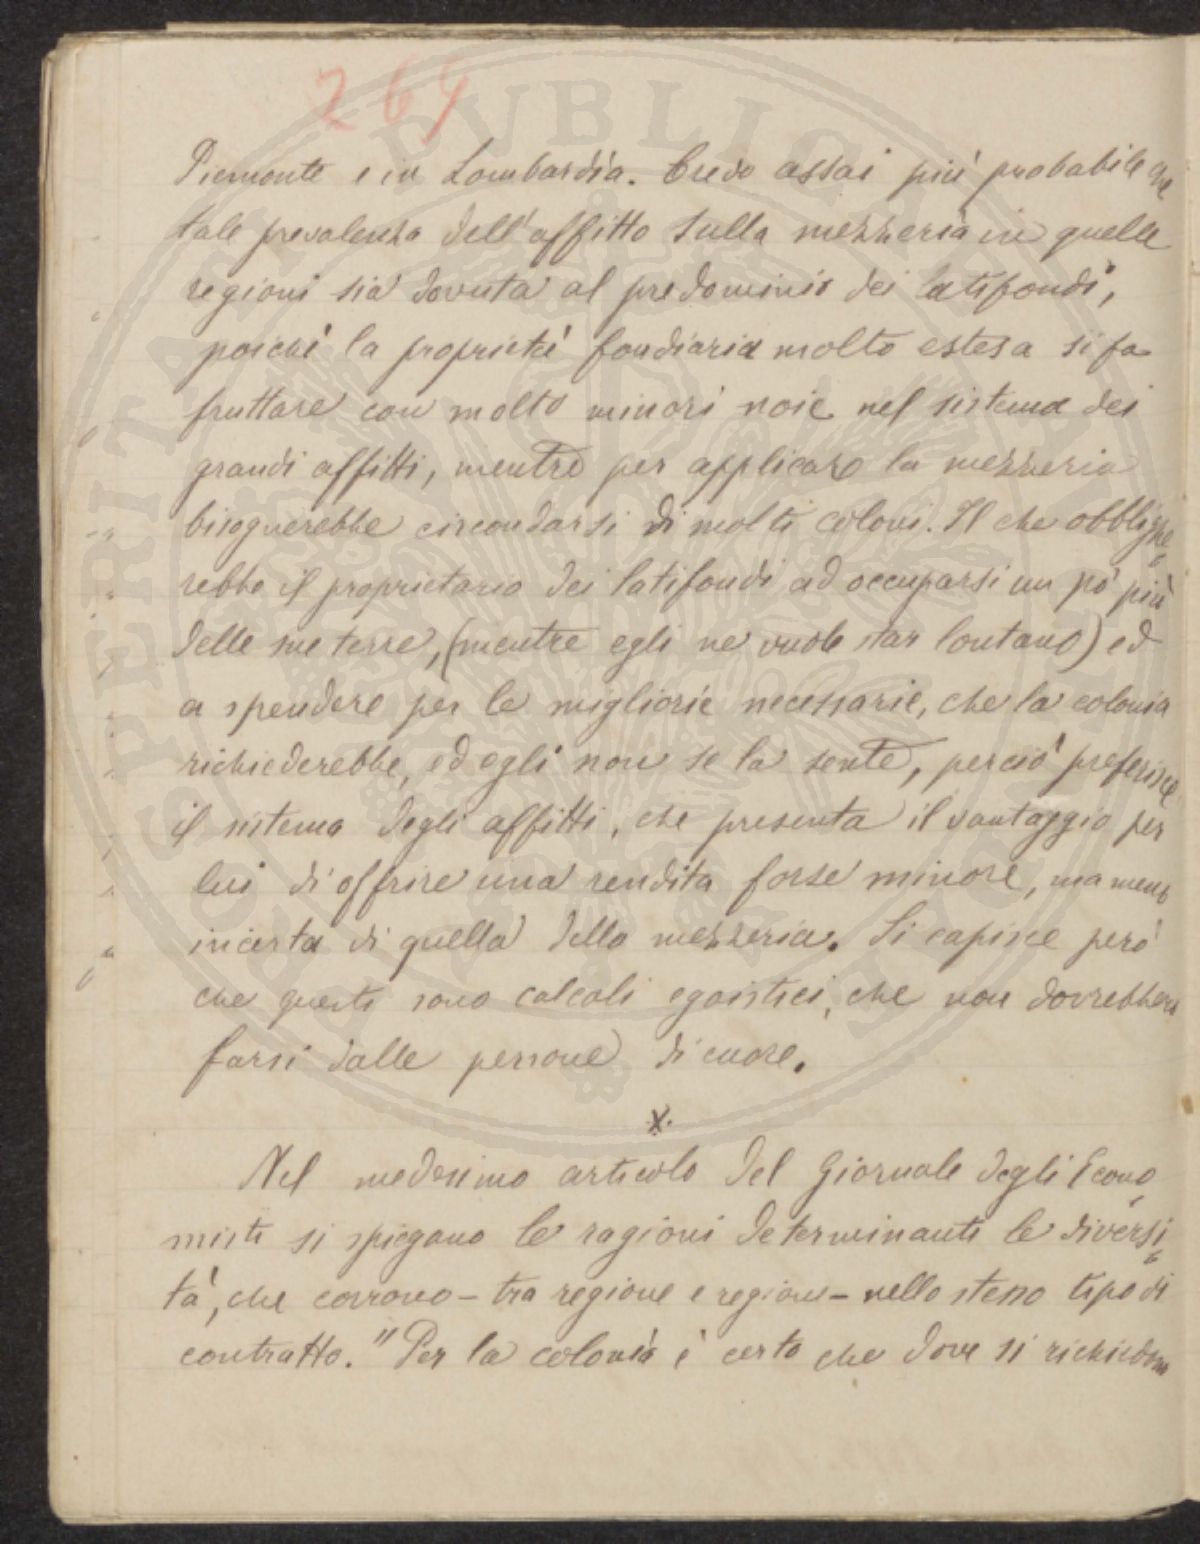 269
Piemonte e in Lombardia. Credo assai più probabile che
tale prevalenza dell'affitto sulla mezzeria in quelle
regioni sia dovuta al predominio dei latifondi,
poichè la proprietà fondiaria molto estesa si fa
fruttare con molto minori noie nel sistema dei
grandi affitti, mentre per applicare la mezzeria
bisognerebbe circondarsi di molti coloni. Il che obblighe=
rebbe il proprietario dei latifondi ad occuparsi un pò più
delle sue terre, (mentre egli ne vuole star lontano) ed
a spendere per le migliorie necessarie, che la colonia
richiederebbe, ed egli non se la sente, perciò preferisce
il sistema degli affitti, che presenta il vantaggio per
lui di offrire una rendita forse minore, ma meno
incerta di quella della mezzeria. Si capisce però
che questi sono calcoli egoistici, che non dovrebbero
farsi dalle persone di cuore.
x.
Nel medesimo articolo del Giornale degli Econo=
misti si spiegano le ragioni determinanti le diversi=
tà, che corrono – tra regione e regione – nello stesso tipo di
contratto. "Per la colonia è certo che dove si richiedono